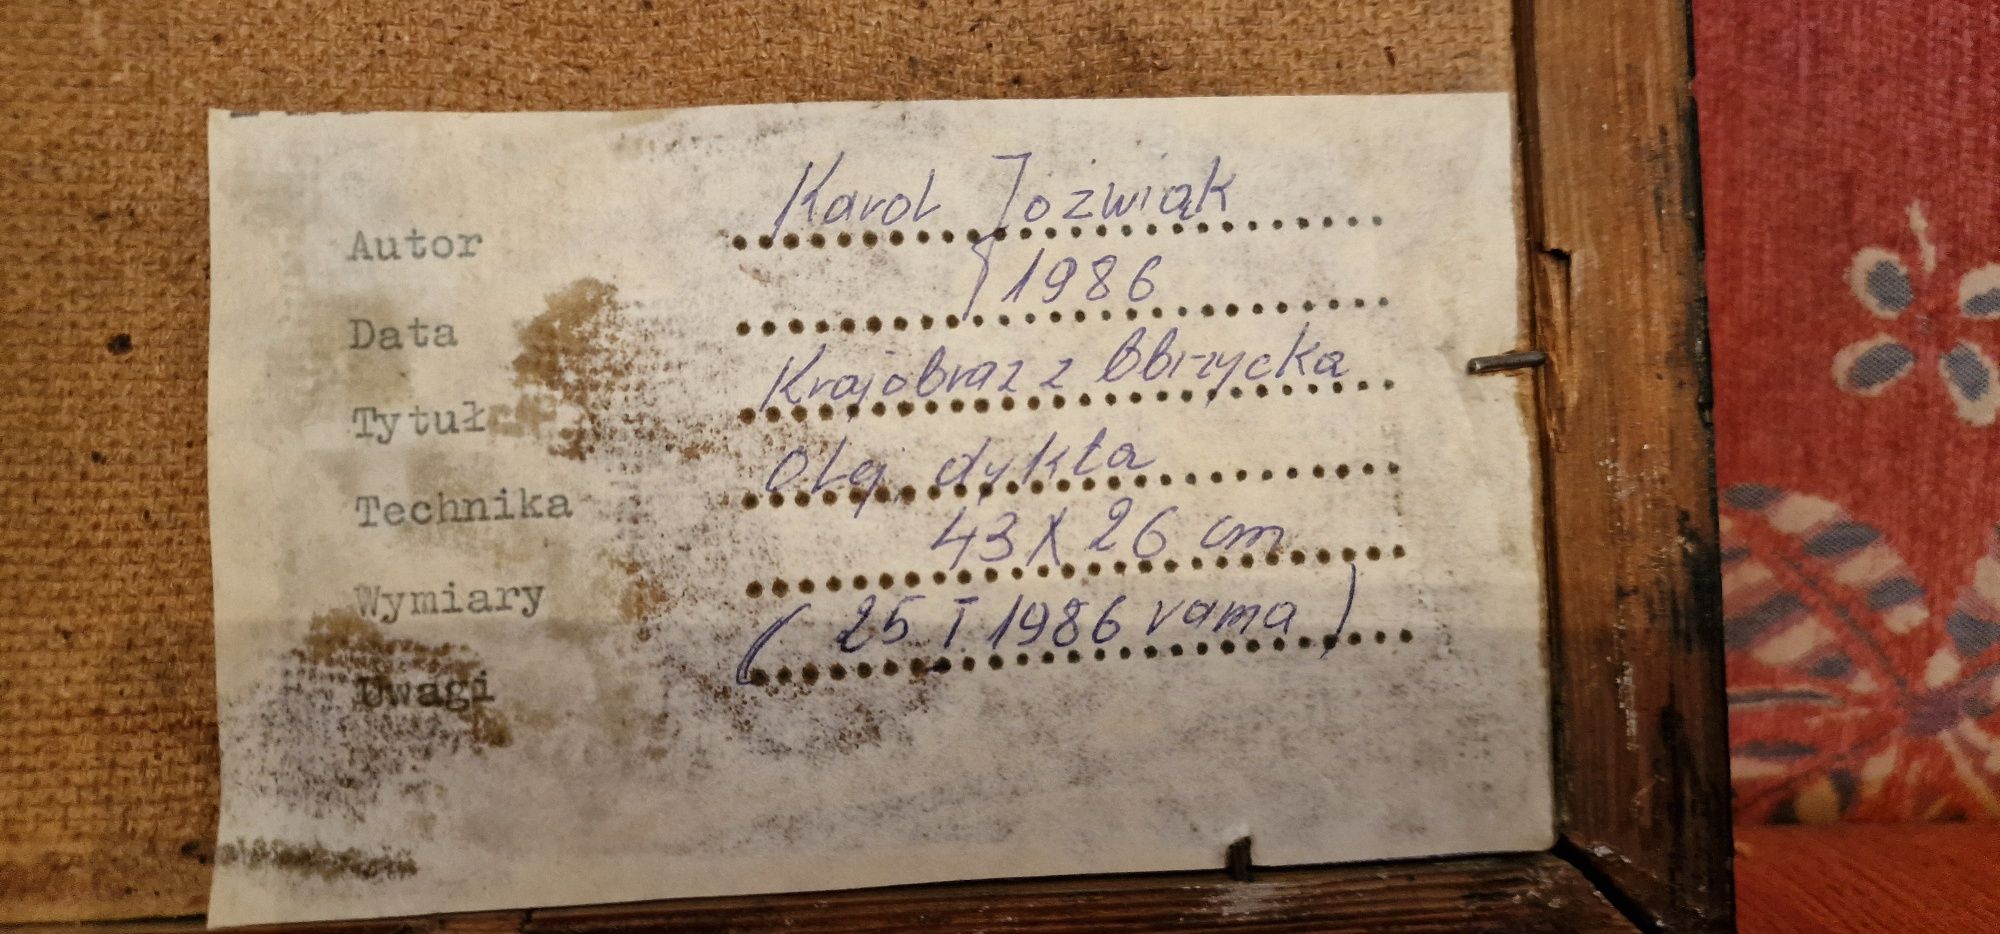 Autor Karol Jóźwiak
Data 1986
Tytuł Krajobraz z Obrzycka
Technika olej, dykta
Wymiary 43 X 26 cm
Uwagi ( 25 I 1986 rama )